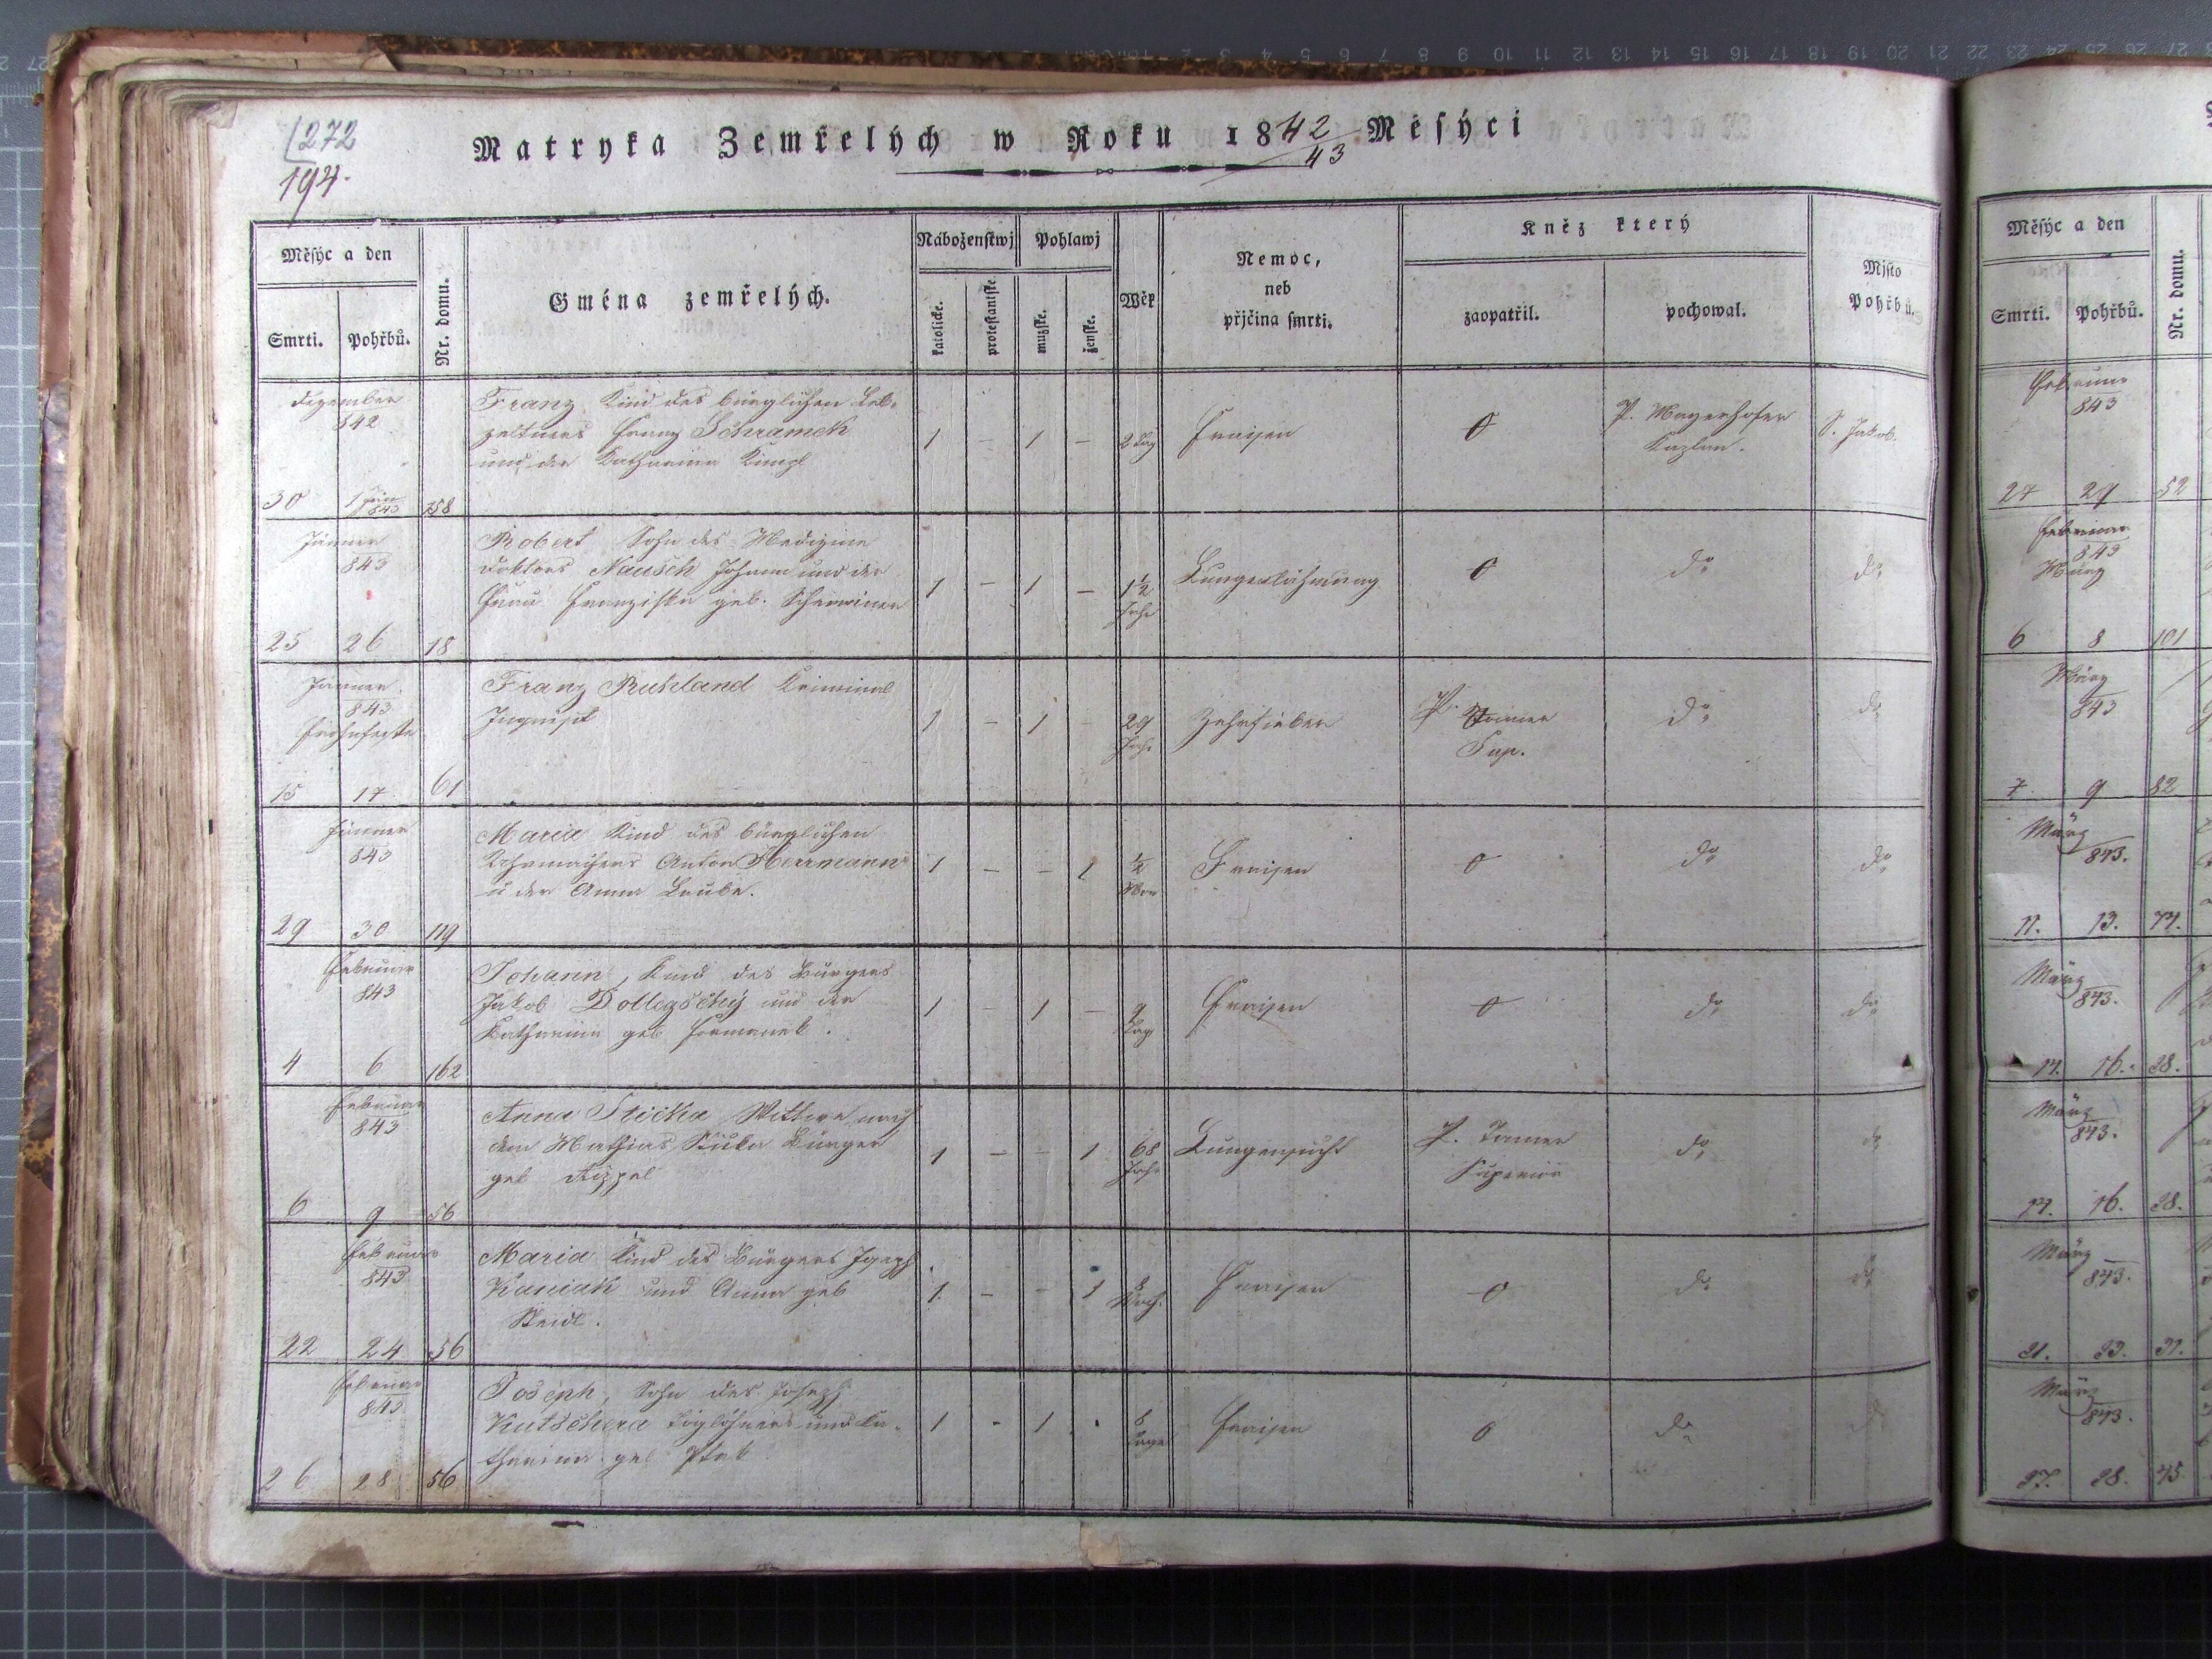 272
194.
Matryka Zemřelých w Roku 1842/43 Měsýci
Měsýc a den
Smrti.
Pohřbů.
Nr. domu.
Gména zemřelých.
Náboženstwj
katolické.
protestantské.
Pohlawj
mužské.
ženské.
Wěk
Nemoc,
neb
přjčina smrti.
Kněz který
zaopatřil.
pochowal.
Mjsto
Pohřbů.
Dezember
842
Franz, Kind des bürglichen Leb-
zeltners Franz Schramek
und der Katharina
1 - 1 - 2 Tag
Fraisen
0
P. Mayerhofer
Kaplan.
S. Jakob.
30 1 Jän 843 158
Jänner
843
Robert Sohn des Medizine
Doktors Nausch Johann und der
Frau Franziska geb.
1 - 1 - 1½
Jahr
Lungenlähmung
0
do
do
25 26 18
Jänner
843
Frohnfeste
Franz Ruhland Kriminal
Inquisit
1 - 1 - 29
Jahr
Zehrfieber
P.
Sup.
do
do
15 17 61
Jänner
843
Maria Kind des bürglichen
Anton Herrmann
u der Anna Laube.
1 - - 1 ½
Fraisen
0
do
do
29 30 119
Februar
843
Johann, Kind des Bürgers
Jakob Dollegschy und der
Katharina geb Formanek.
1 - 1 - 9
Tag
Fraisen
0
do
do
4 6 162
Februar
843
Anna Sticka Wittwe nach
dem Mathias Sticka Bürger
geb
1 - - 1 68
Jahr
Lungensucht
P.
Superior
do
do
6 9 56
Februar
843
Maria Kind des Bürgers Joseph
Kaniak und Anna geb
1. - - 1 8
Woch.
Fraisen
0
do
do
22 24 56
Februar
843
Joseph, Sohn des Joseph
Kutschera Taglöhners und Ka-
tharina geb Ptak
1 - 1 - 6
Tage
Fraisen
0
do
do
26 28 56
Měsýc a den
Smrti.
Pohřbů.
Nr. domu.
Februar
843
27 29 52
Februar
843
März
6 8 101
März
843
7. 9 82
März
843.
11. 13. 74.
März
843.
14. 16. 28.
März
843.
14. 16. 28.
März
843.
21. 23. 31.
März
843.
27. 28. 45